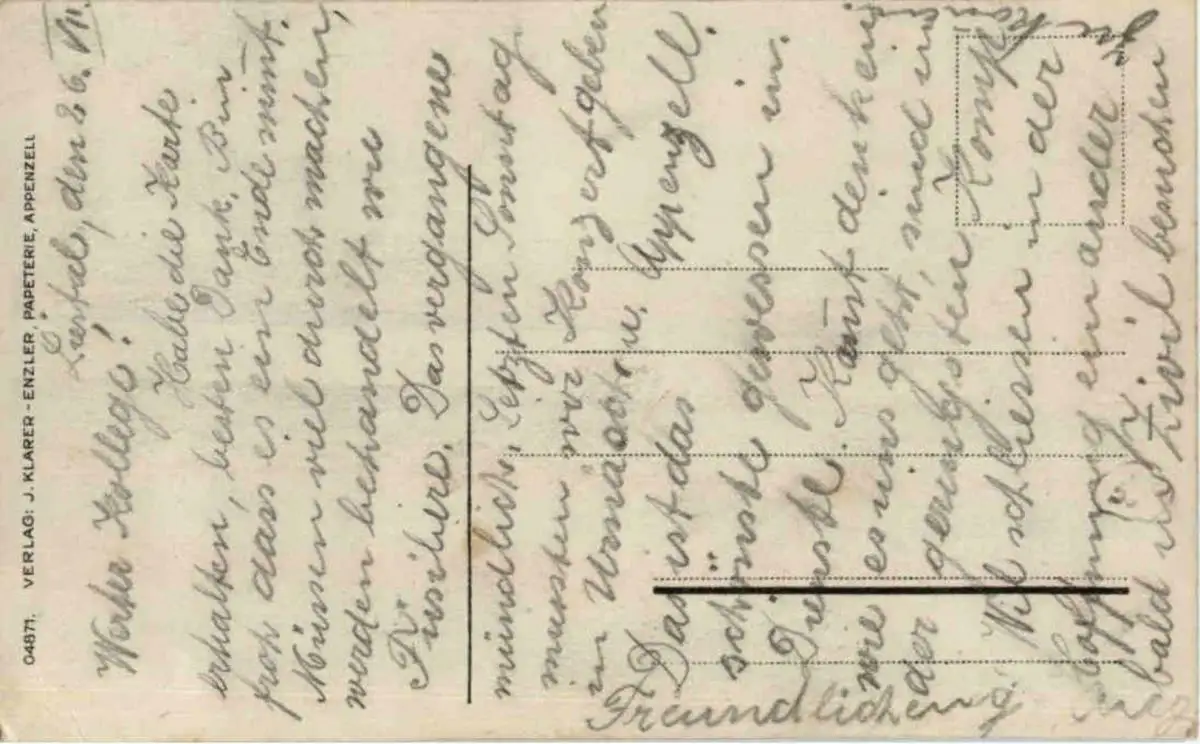 Liestal, den 26. VII.
Werter Kollege!
Habe die Karte
erhalten, besten Dank. Bin
froh dass es ein Ende nimt.
Müssen viel durch machen,
werden behandelt wie
Füsiliere. Das vergangene
mündlich. Letzten Sonntag
mussten wir Konzert geben
in Urnäsch u. Appenzell.
Das ist das
schönste gewesen im
Dienste. Kanst denken
wie es uns geht, sind in
der Komp.
Wil schliessen in der
Hoffnung ein ander
bald im Zivil besuchen
Freundlichen
04871. VERLAG: J. KLARER - ENZLER, PAPETERIE, APPENZELL